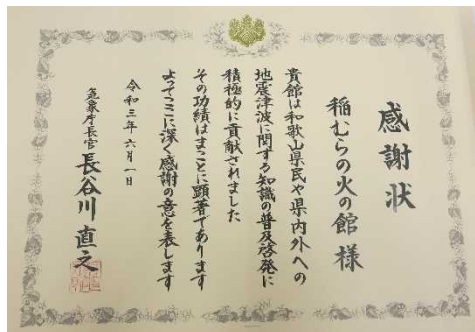 感謝状
稲むらの火の館 様
貴館は和歌山県民や県内外への
地震津波に関する知識の普及啓発に
積極的に貢献されました
その功績はまことに顕著であります
よってここに深く感謝の意を表します
令和三年六月一日
気象庁長官 長谷川直之